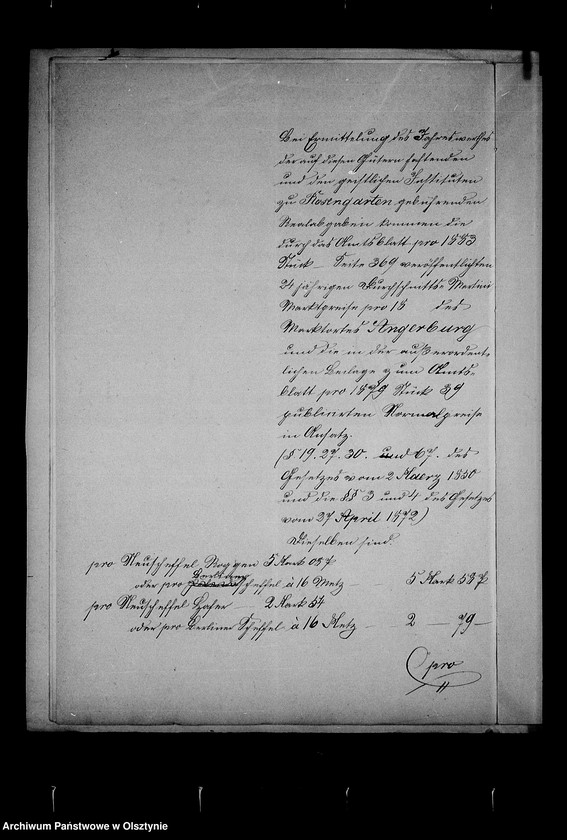 Bei Ermittelung des Jahreswerthes
der auf diesen Gütern haftenden
und den geistlichen Instituten
zu Rosengarten gebührenden
Realabgaben kommen die
durch das Amtsblatt pro 1883
Stück — Seite 369 veröffentlichten
24 jährigen Durchschnitts Martini
Marktpreise pro 18 des
Marktortes Angerburg
und die in der außerordent-
lichen Beilage zum Amts-
blatt pro 1879 Stück 39
publicirten Normalpreise
in Ansatz.
(§ 19. 27. 30. und 67. des
Gesetzes vom 2 Maerz 1850
und die §§ 3 und 4 des Gesetzes
vom 27 April 1872)
Dieselben sind.
pro Neuscheffel Roggen 5 Mark 057
oder pro Berliner scheffel à 16 Metz — 5 Mark 557
pro Neuscheffel Hafer — 2 Mark 54
oder pro Berliner Scheffel à 16 Metz — 2 — 79 —
pro
Archiwum Państwowe w Olsztynie